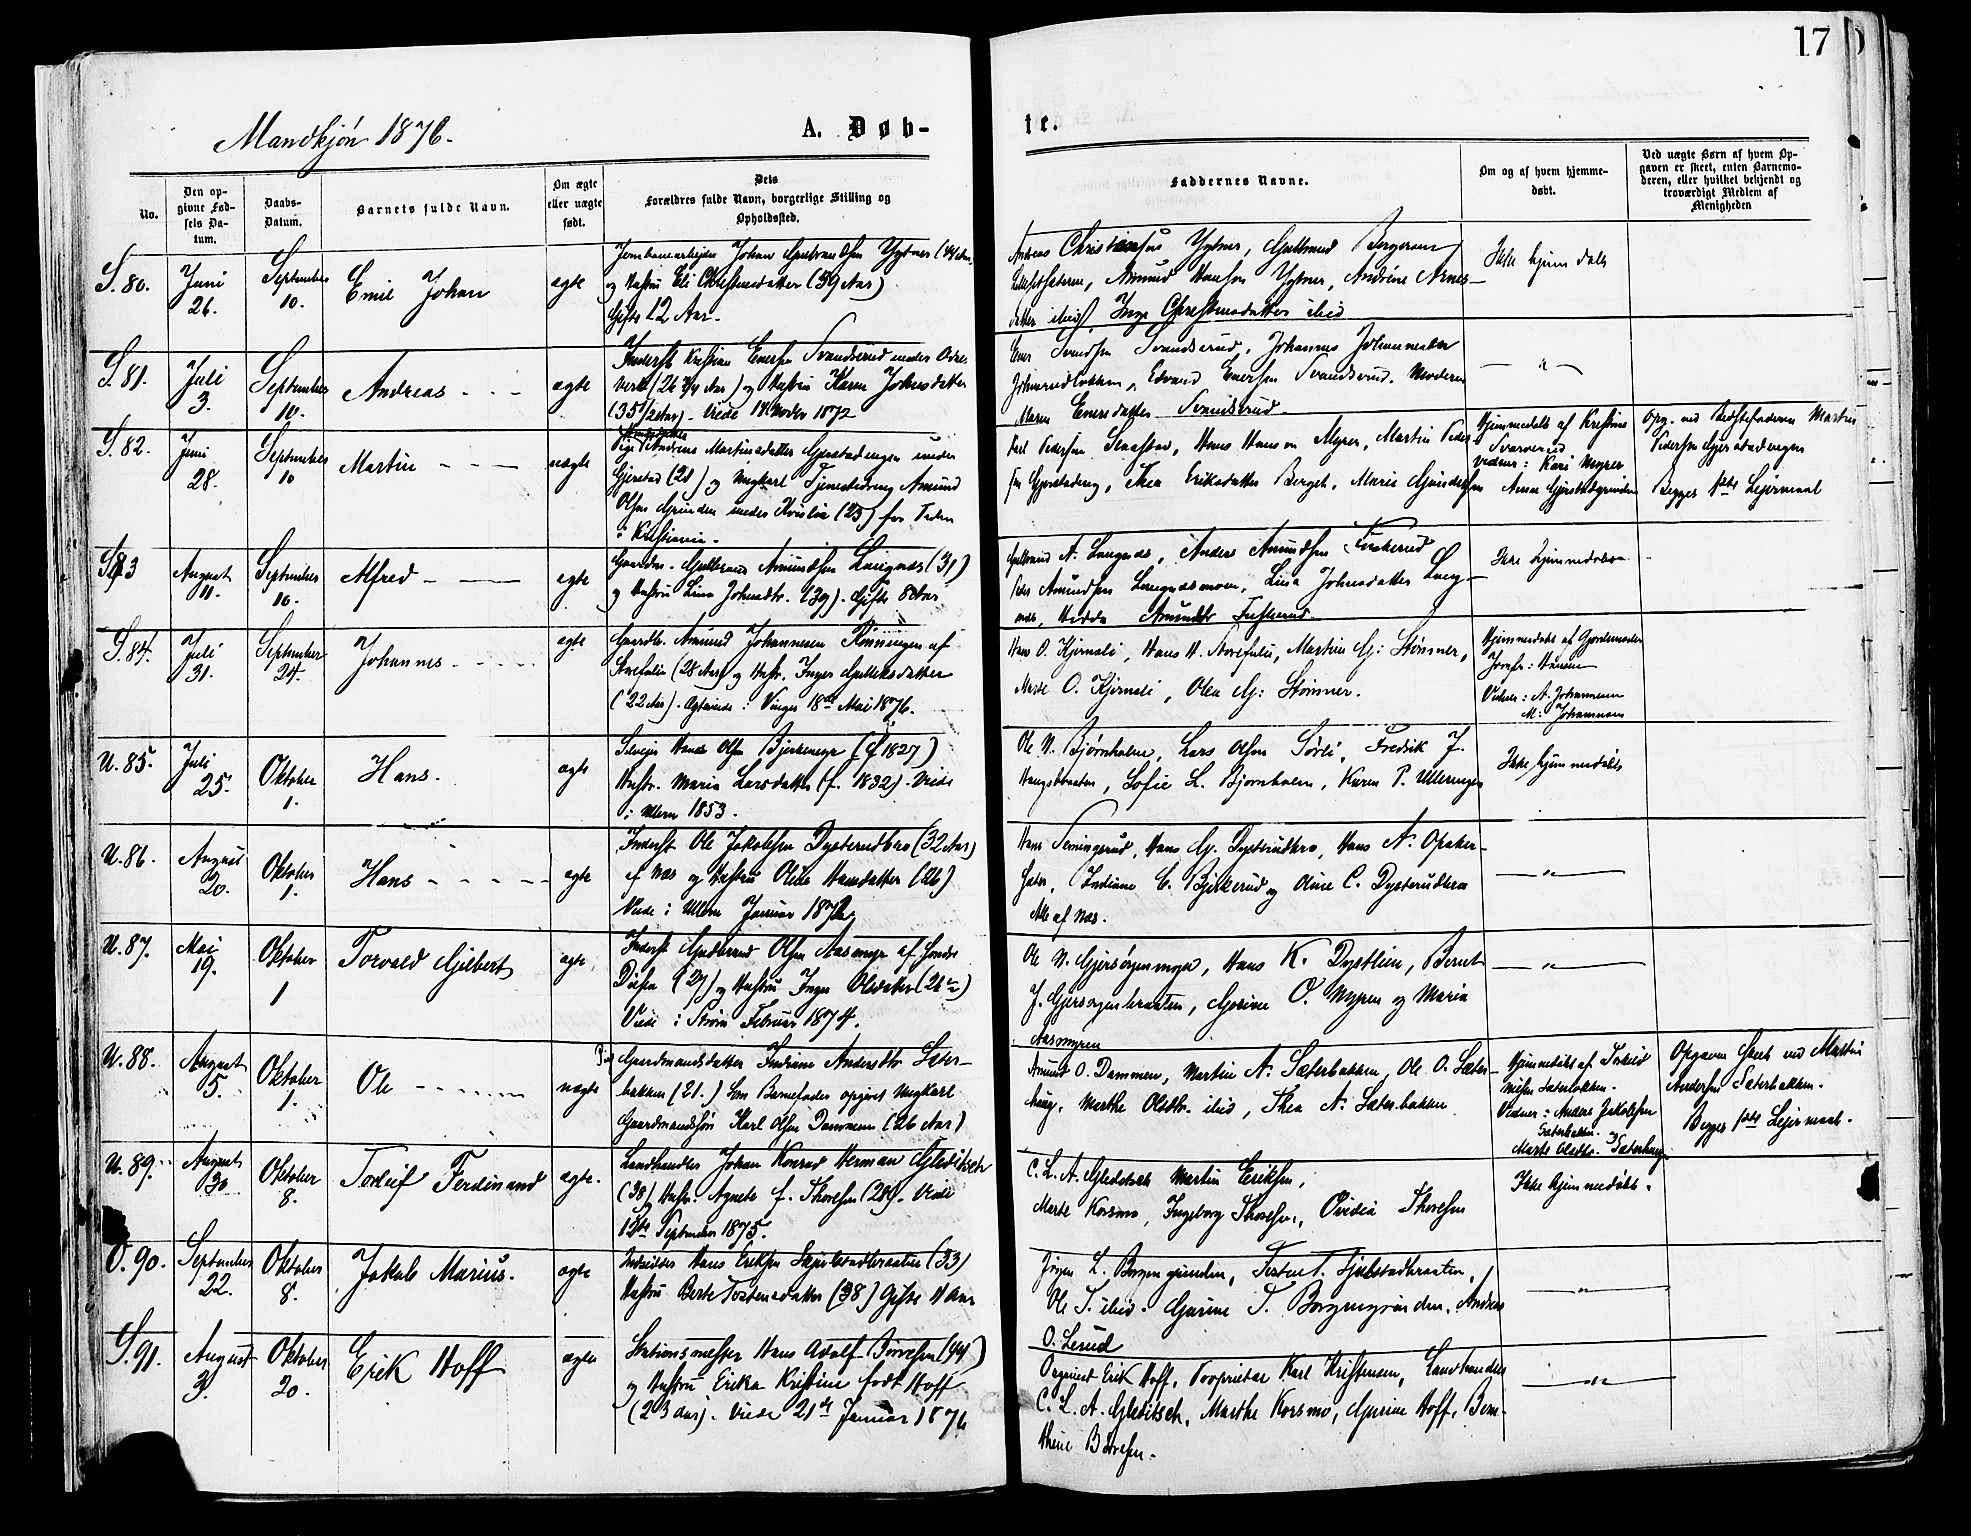 17
Mandkjøn 1876.
A. Døb-
te.
No.
Den op-
givne Fød-
sels Da-
tum.
Daabs-
Datum.
Barnets fulde Navn.
Om ægte
eller uægte
født.
Dets
Forældres fulde Navn, borgerlige Stilling og
Opholdssted.
Faddernes Navne.
Om og af hvem hjemme-
døbt.
Ved uægte Børn af hvem Op-
gaven er skeet, enten Barnemo-
deren, eller hvilket bekjendt og
troværdigt Medlem af
Menigheden
S. 80.
Juni
26.
September
10.
Emil Johan
ægte
og Hustru Eli Christensdatter (39 Aar)
Gifte 12 Aar.
Amund Hansen Andrine Arnes-
datter ibid, Inge Christensdatter ibid
Ikke hjemdøbt
S. 81.
Juli
3.
September
10.
Andreas
ægte
Inderst Kristian Enersen Svandserud under Odals
Verk (26 3/4 Aar) og Hustru Karen Johnsdatter
(35 1/2 Aar). Viede 14 Novbr 1872
Ener Svendsen Svandserud, Johannes Johannesen
Edvard Enersen Svandserud. Moderen
Maren Enersdatter Svandserud
— " —
S. 82.
Juni
28.
September
10
Martin
uægte
Pige Andrine Martinsdatter Gjerstadengen under
Gjerstad (20) og Ungkarl Tjenestedreng Amund
Olsen Grinden under (25) for Tiden
i Kristiania.
Hans Hansen Myrer, Martin Peder-
sen Thea Eriksdatter Berget, Marie
Hjemmedøbt af Kristine
Vidner: Kari Myrer
Anne
Opg. ved Bedstefaderen Martin
Pedersen Gjerstadengen
Begges 1ste Leiermaal
S. 83
August
11.
September
10.
Alfred
ægte
Gaardm. Gulbrand Amundsen Langnæs (31)
og Hustru Lina Johnsdtr. (39). Gifte 8 Aar
Gulbrand A. Langnæs, Anders Amundsen
Peder Amundsen Langnæsmoen, Lina Johnsdatter Lang-
næs, Hedda Amundsdtr
Ikke hjemmedøbt
S. 84.
Juli
31.
September
24.
Johannes
ægte
Gaardbr. Amund Johannesen Rønningen af
(28 Aar) og Hustr. Inger Gulliksdatter
(22 Aar). Ægteviede i Vinger 18de Mai 1876.
Hans O. Kjernsli, Hans H. Martin G: Strømner,
O. Kjernsli, Olea G: Strømner.
Hjemmedøbt af Gjordemoder
Hansen
Vidner: A. Johannesen
M: Johannesen
U. 85.
Juli
25.
Oktober
1.
Hans.
ægte
Selveier Hans Olsen Bjerkemyr (f. 1827)
Hustr. Maria Larsdatter (f. 1832). Viede
i Ullern 1853.
Ole N. Bjørnholen, Lars Olsen Sørli, Fredrik J.
Haugsbraaten, Sofie L. Bjørnholen, Karen P. Ullerengen
Ikke hjemmedøbt
U. 86.
August
20.
Oktober
1.
Hans
ægte
Inderst Ole Jakobsen Dysterudbro (32 Aar)
af Næs og Hustru Oline Hansdatter (26)
Viede i Ullern Januar
Hans G. Dysterudbro, Hans A. Opaker-
Sæter, Indiane E. Bjerkerud og Oline C. Dysterudbro
Alle af Næs.
— " —
U. 87.
Mai
19.
Oktober
1
Torvald Gilbert
ægte
Inderst Gudbrand Olsen Aasmyr af Søndre
Disen (27) og Hustru Inger Olsdatter (26)
Viede i Strøm Februar 1874.
Ole N. Hans K. Dystlien, Bernt
J. O. Nypen og Maria
Aasmyren
— " —
U. 88.
August
5.
Oktober
1.
Ole
uægte
Gaardmandsdatter Indiane Andersdtr Sæter-
bakken (21.) Som Barnefader opgivet Ungkarl
Gaardmandssøn Karl Olsen Dammen (26 Aar)
Amund O. Dammen, Martin A. Sæterbakken, Ole O. Sæter-
haug, Marthe Olsdtr. ibid, Thea A. Sæterbakken
Hjemmedøbt af
Vidner: Anders Jakobsen
Sæterbakken.
Marte Olsdtr. Sæterhaug
Opgaven skeet ved Martin
Andersen Sæterbakken.
Begges 1ste Leiermaal.
U. 89.
August
30
Oktober
8.
Torleif Ferdinand
ægte.
Landhandler Johan Konrad Herman Gleditsch
(38) Hustr. Agnete f. Thoresen (20). Viede
12te September 1875.
C. L. A. Gleditsch Martin Eriksen,
Marte Korsmo, Ingeborg Thoresen, Ovidia Thoresen
Ikke hjemmedøbt.
O. 90.
September
22.
Oktober
8.
Jakob Marius.
ægte
Hans Eriksen Skjulstadbraaten (33)
Hustru Berte Tostensdatter (38) Gifte 11 Aar
Jørgen L. Borgengrinden,
Ole T. ibid. Gurine T. Borgengrinden, Andreas
O. Lerud
— " —
S. 91.
August
3.
Oktober
20.
Erik Hoff
ægte
Stationsmester Hans Adolf Børresen (44)
og Hustru Erika Kristine født Hoff
(23 Aar). Viede 21de Januar 1876
Organist Erik Hoff, Proprietær Karl Kristensen, Landhandler
C. L. A. Gleditsch, Marthe Korsmo, Gurine Hoff,
Børresen.
— " —